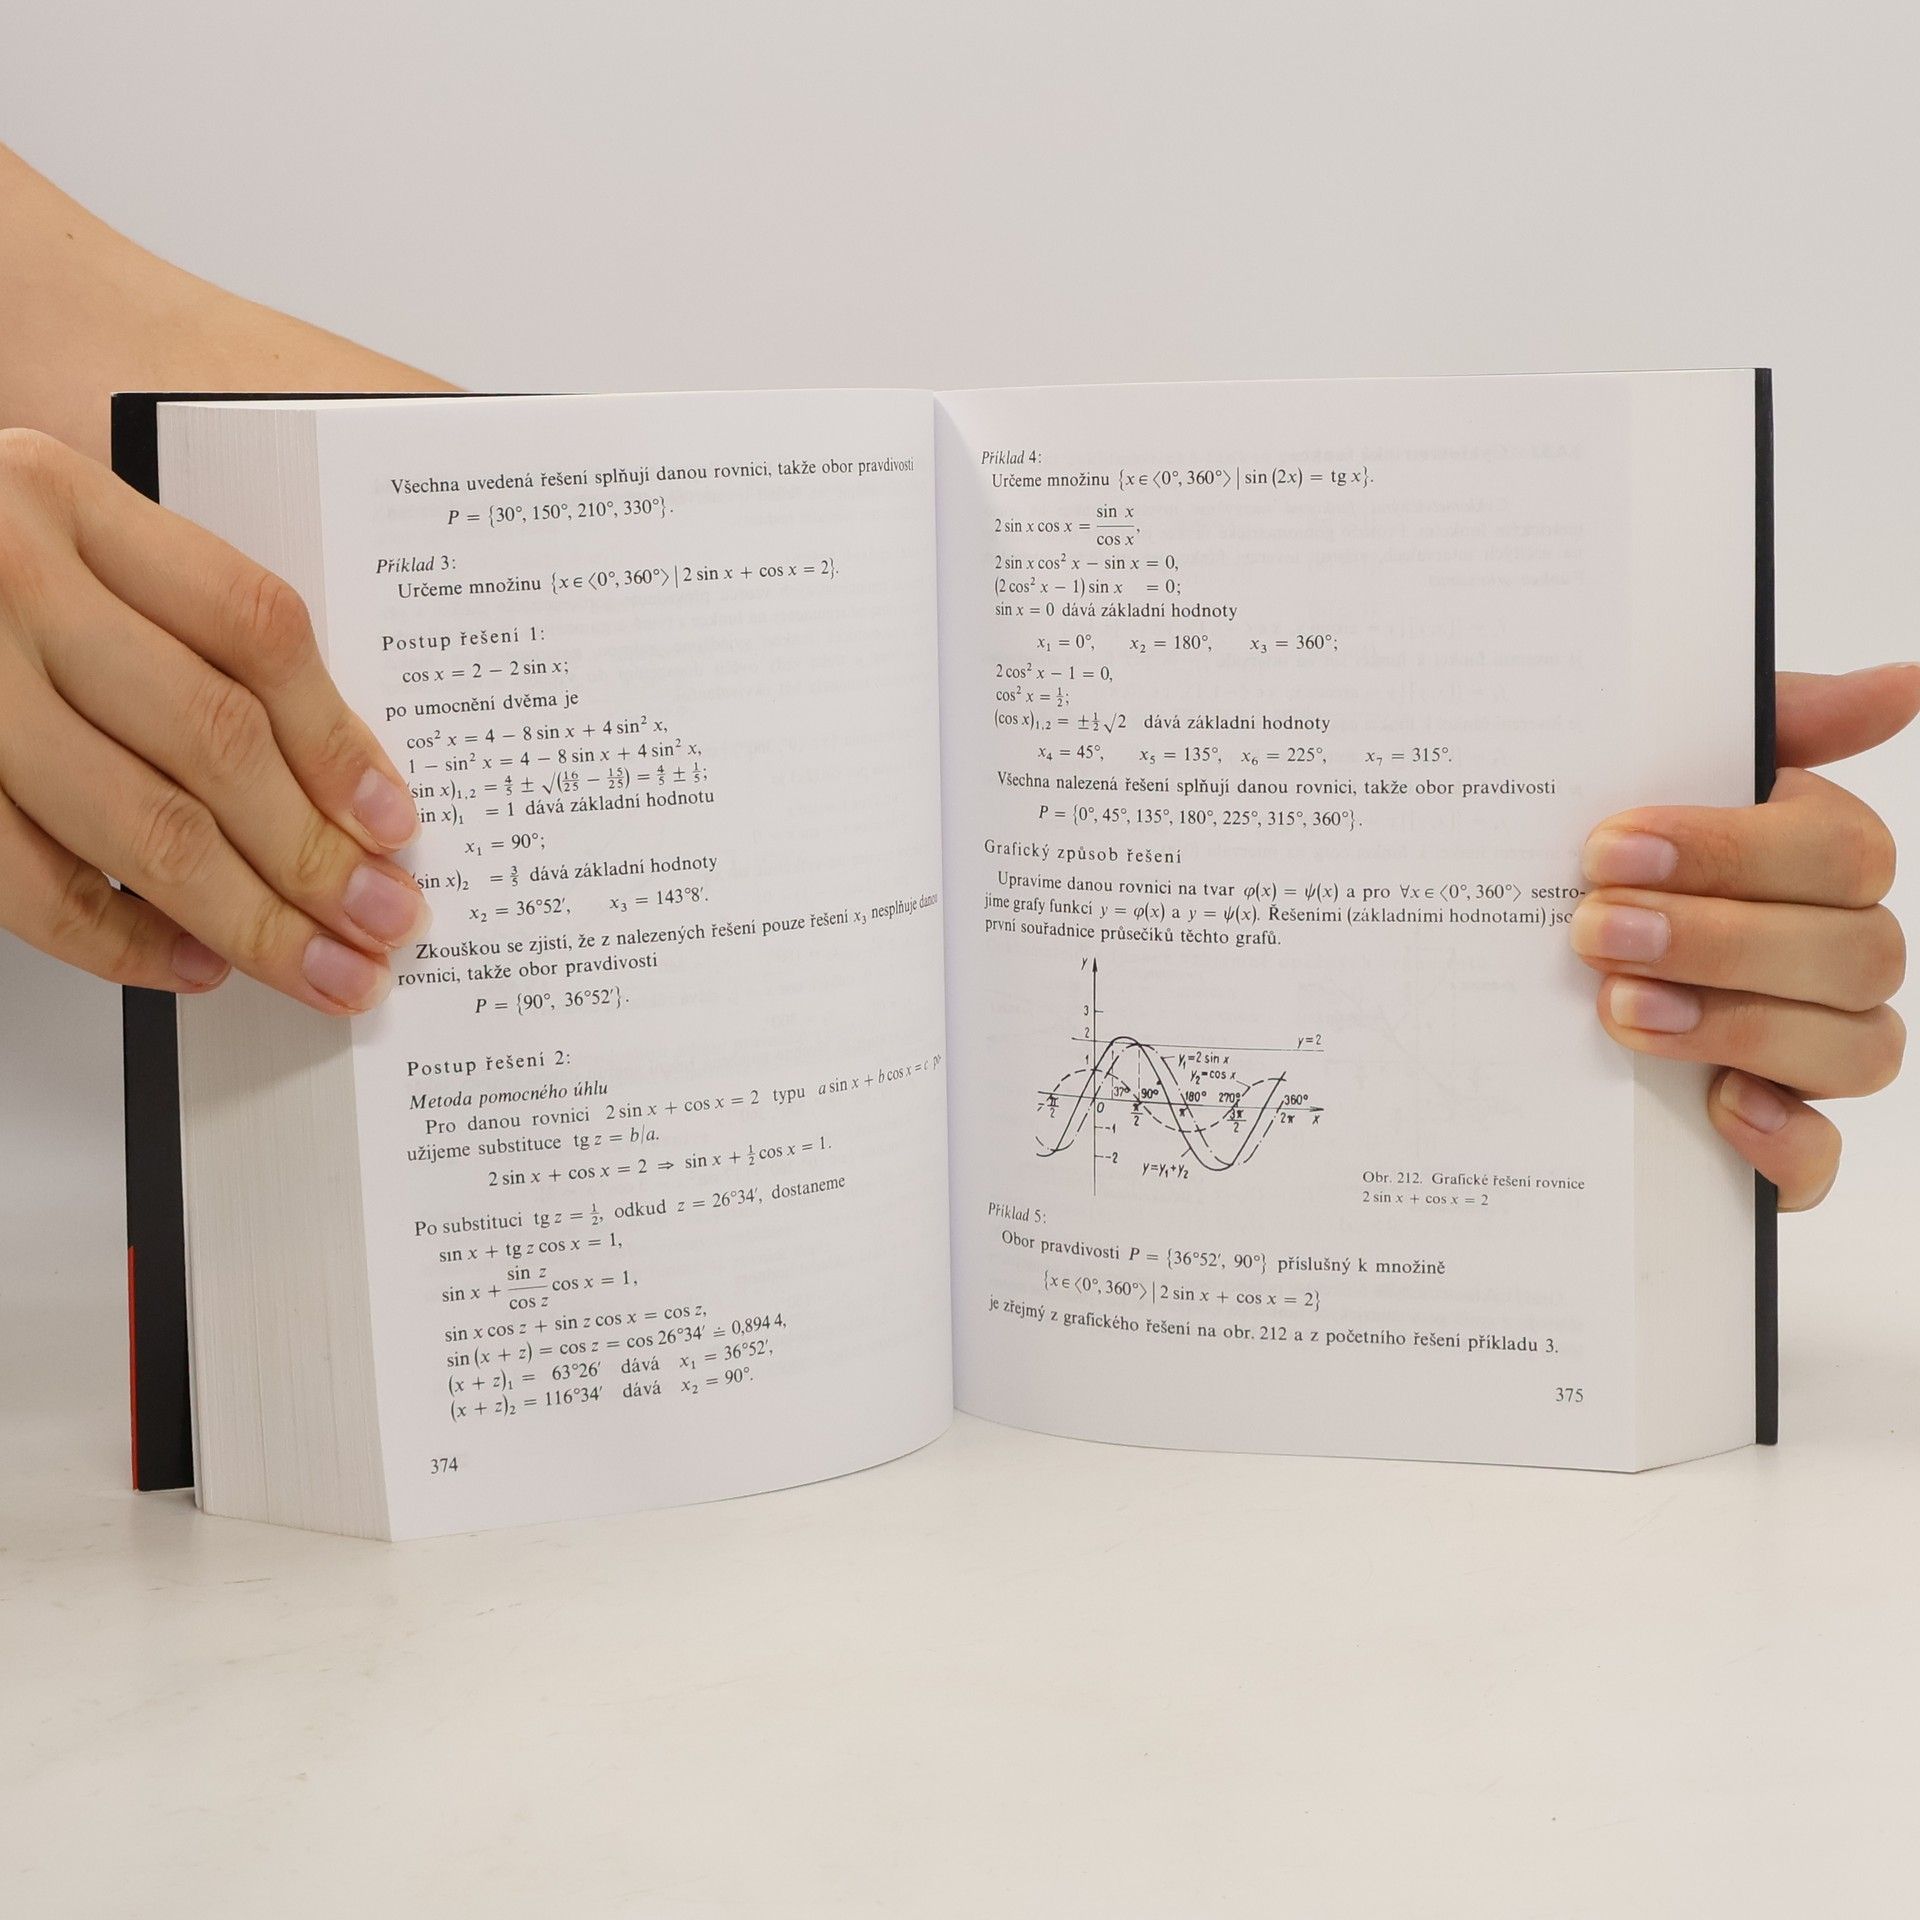 Všechna uvedená řešení splňují danou rovnici, takže obor pravdivosti
P = {30°, 150°, 210°, 330°}.
Příklad 3:
Určeme množinu {x ∈ ⟨0°, 360°⟩ | 2 sin x + cos x = 2}.
Postup řešení 1:
cos x = 2 − 2 sin x;
po umocnění dvěma je
cos² x = 4 − 8 sin x + 4 sin² x,
1 − sin² x = 4 − 8 sin x + 4 sin² x,
(sin x)₁,₂ = 4/5 ± √(16/25 − 15/25) = 4/5 ± 1/5;
in x)₁ = 1 dává základní hodnotu
x₁ = 90°;
(sin x)₂ = 3/5 dává základní hodnoty
x₂ = 36°52′, x₃ = 143°8′.
Zkouškou se zjistí, že z nalezených řešení pouze řešení x₃ nesplňuje danou
rovnici, takže obor pravdivosti
P = {90°, 36°52′}.
Postup řešení 2:
Metoda pomocného úhlu
Pro danou rovnici 2 sin x + cos x = 2 typu a sin x + b cos x = c po-
užijeme substituce tg z = b/a.
2 sin x + cos x = 2 ⇒ sin x + 1/2 cos x = 1.
Po substituci tg z = 1/2, odkud z = 26°34′, dostaneme
sin x + tg z cos x = 1,
sin x + sin z/cos z cos x = 1,
sin x cos z + sin z cos x = cos z,
sin (x + z) = cos z = cos 26°34′ ≐ 0,894 4,
(x + z)₁ = 63°26′ dává x₁ = 36°52′,
(x + z)₂ = 116°34′ dává x₂ = 90°.
374
Příklad 4:
Určeme množinu {x ∈ ⟨0°, 360°⟩ | sin (2x) = tg x}.
2 sin x cos x = sin x/cos x,
2 sin x cos² x − sin x = 0,
(2 cos² x − 1) sin x = 0;
sin x = 0 dává základní hodnoty
x₁ = 0°, x₂ = 180°, x₃ = 360°;
2 cos² x − 1 = 0,
cos² x = 1/2;
(cos x)₁,₂ = ±1/2 √2 dává základní hodnoty
x₄ = 45°, x₅ = 135°, x₆ = 225°, x₇ = 315°.
Všechna nalezená řešení splňují danou rovnici, takže obor pravdivosti
P = {0°, 45°, 135°, 180°, 225°, 315°, 360°}.
Grafický způsob řešení
Upravíme danou rovnici na tvar φ(x) = ψ(x) a pro ∀x ∈ ⟨0°, 360°⟩ sestro-
jíme grafy funkcí y = φ(x) a y = ψ(x). Řešeními (základními hodnotami) jso
první souřadnice průsečíků těchto grafů.
y
3
2
y=2
1
y₁=2 sin x
y₂=cos x
37° 90° 180° 270° 360°
-π/2 0 π/2 π 3π/2 2π x
-1
-2
y=y₁+y₂
Obr. 212. Grafické řešení rovnice
2 sin x + cos x = 2
Příklad 5:
Obor pravdivosti P = {36°52′, 90°} příslušný k množině
{x ∈ ⟨0°, 360°⟩ | 2 sin x + cos x = 2}
je zřejmý z grafického řešení na obr. 212 a z početního řešení příkladu 3.
375